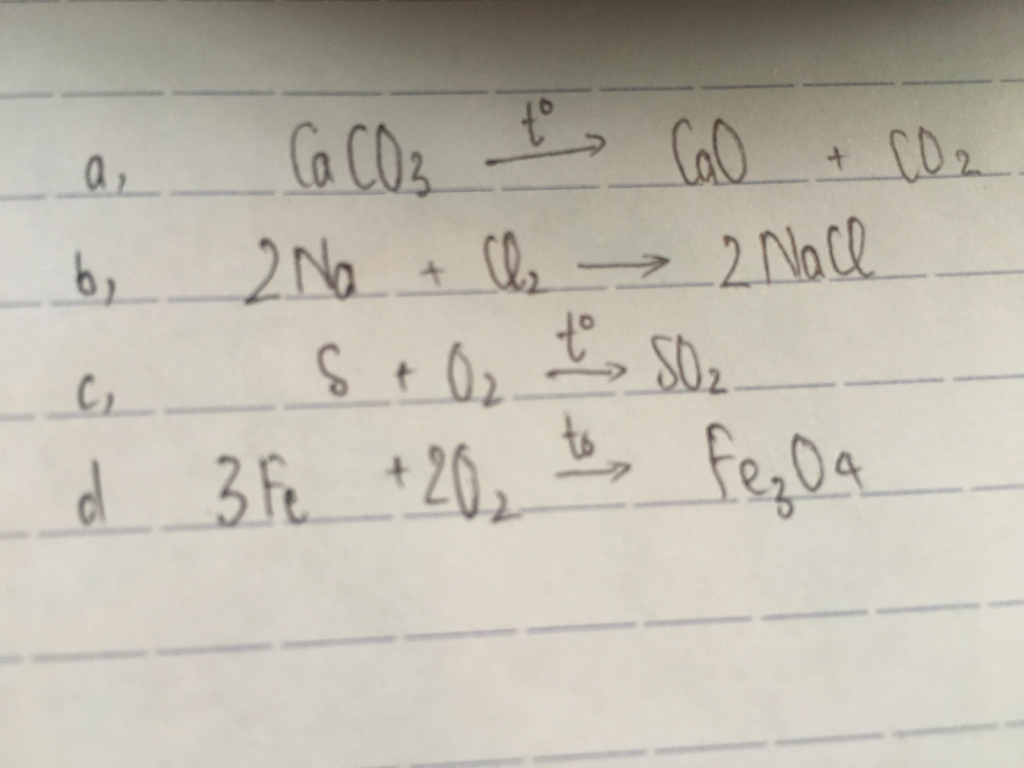 a, CaCO₃ \xrightarrow{t°} CaO + CO₂
b, 2Na + Cl₂ → 2NaCl
c, S + O₂ \xrightarrow{t°} SO₂
d 3Fe + 2O₂ \xrightarrow{to} Fe₃O₄